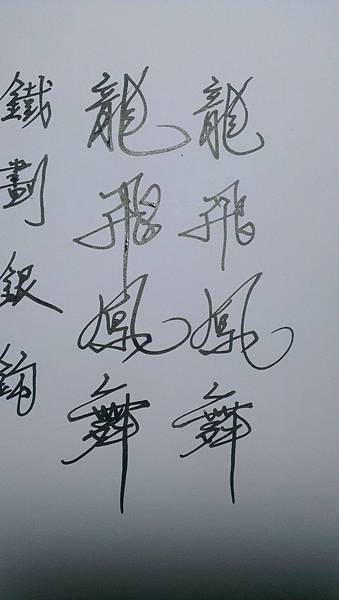 龍飛鳳舞
龍飛鳳舞
鐵劃銀鉤